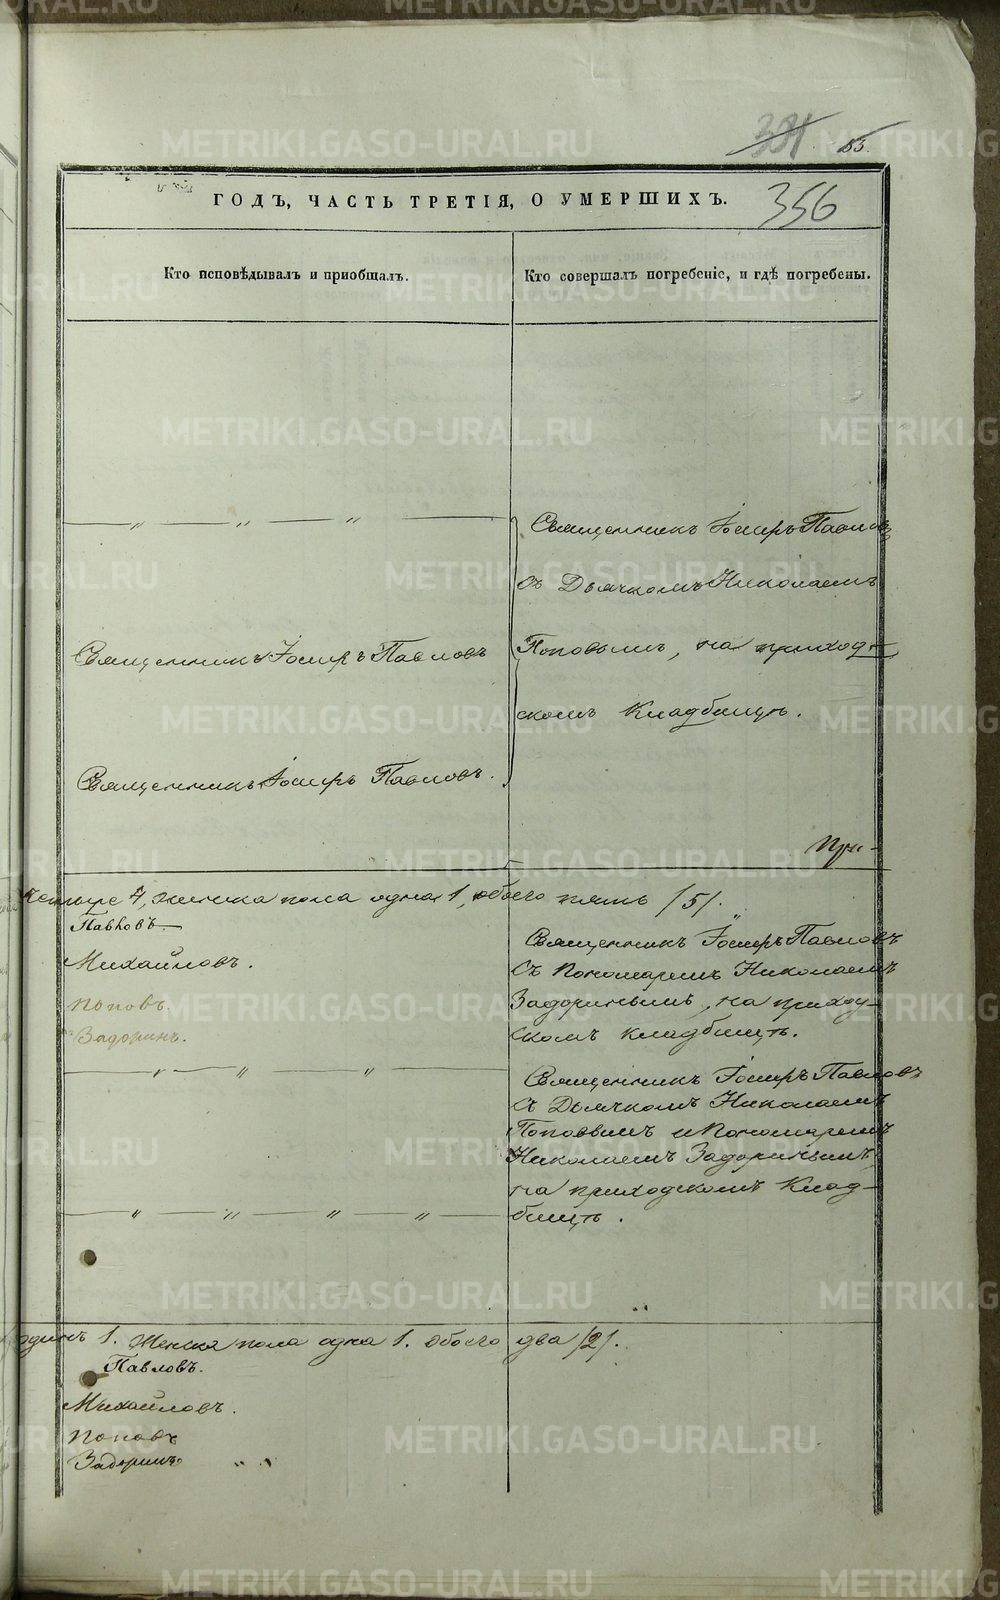 391 53
ГОДЪ, ЧАСТЬ ТРЕТІЯ, О УМЕРШИХЪ.
356
Кто исповѣдывалъ и приобщалъ.
Кто совершалъ погребеніе, и гдѣ погребены.
— „ — „ — „ —
Священникъ Іосифъ Павловъ
Священникъ Іосифъ Павловъ.
Священникъ Іосифъ Павловъ
съ Дьячкомъ Николаемъ
Поповымъ, на приход-
скомъ Кладбищѣ.
При-
четыре 4, женска пола одна 1, обоего пять /5/.
Павловъ
Михайловъ.
Поповъ.
Задоринъ.
— „ — „ — „ —
— „ — „ — „ — „ —
Священникъ Іосифъ Павловъ
съ Пономаремъ Николаемъ
Задоринымъ, на приход-
скомъ кладбищѣ.
Священникъ Іосифъ Павловъ
съ Дьячкомъ Николаемъ
Поповымъ и Пономаремъ
Николаемъ Задоринымъ,
на приходскомъ Клад-
бищѣ.
одинъ 1. Женска пола одна 1. Обоего два /2/.
Павловъ.
Михайловъ.
Поповъ
Задоринъ
METRIKI.GASO-URAL.RU